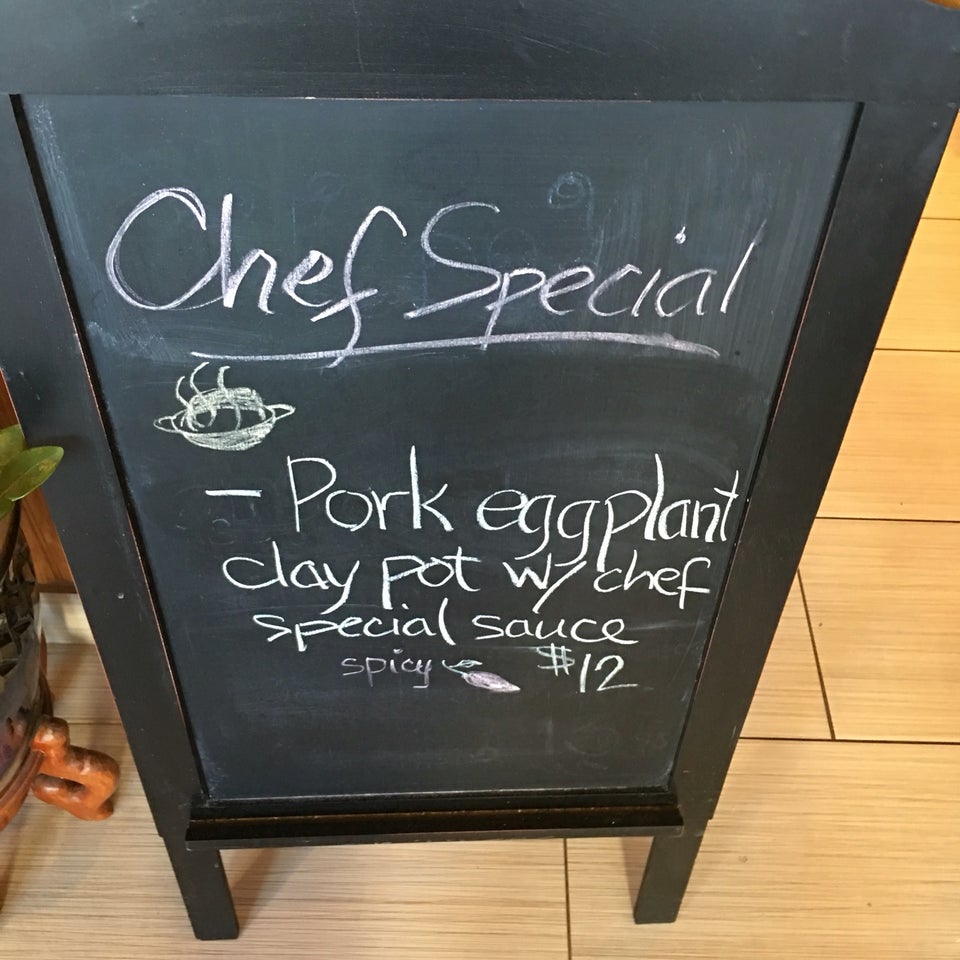 Chef Special
- Pork eggplant
clay pot w/ chef
special sauce
spicy $12